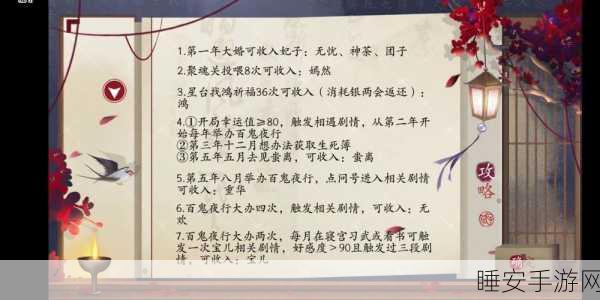 1.第一年大婚可收入妃子：无忧、神荼、团子
2.聚魂关投喂8次可收入：嫣然
3.星台找鸿祈福36次可收入（消耗银两会返还）；
鸿
4.①开局幸运值≥80，触发相遇剧情，从第二年开
始每年举办百鬼夜行
②第三年十二月想办法获取生死簿
③第五年五月去见蚩离，可收入：蚩离
5.第五年八月举办百鬼夜行，点问号进入相关剧情
可收入：重华
6.百鬼夜行大办四次，触发相关剧情，可收入：无
欢
7.百鬼夜行大办两次，每月在寝宫习武或看书可触
发一次宝儿相关剧情，好感度>90且触发过三段剧
情，可收入：宝儿
攻略
睡安手游网